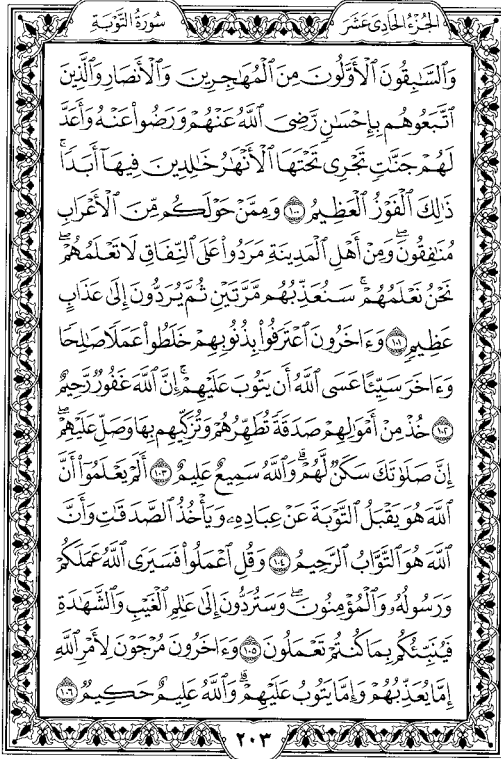 الجزء الحادى عشر
سورة التوبة
وَٱلسَّٰبِقُونَ ٱلْأَوَّلُونَ مِنَ ٱلْمُهَٰجِرِينَ وَٱلْأَنصَارِ وَٱلَّذِينَ
ٱتَّبَعُوهُم بِإِحْسَٰنٍ رَّضِىَ ٱللَّهُ عَنْهُمْ وَرَضُوا۟ عَنْهُ وَأَعَدَّ
لَهُمْ جَنَّٰتٍ تَجْرِى تَحْتَهَا ٱلْأَنْهَٰرُ خَٰلِدِينَ فِيهَآ أَبَدًا ۚ
ذَٰلِكَ ٱلْفَوْزُ ٱلْعَظِيمُ ١٠٠ وَمِمَّنْ حَوْلَكُم مِّنَ ٱلْأَعْرَابِ
مُنَٰفِقُونَ ۖ وَمِنْ أَهْلِ ٱلْمَدِينَةِ مَرَدُوا۟ عَلَى ٱلنِّفَاقِ لَا تَعْلَمُهُمْ ۖ
نَحْنُ نَعْلَمُهُمْ ۚ سَنُعَذِّبُهُم مَّرَّتَيْنِ ثُمَّ يُرَدُّونَ إِلَىٰ عَذَابٍ
عَظِيمٍ ١٠١ وَءَاخَرُونَ ٱعْتَرَفُوا۟ بِذُنُوبِهِمْ خَلَطُوا۟ عَمَلًا صَٰلِحًا
وَءَاخَرَ سَيِّئًا عَسَى ٱللَّهُ أَن يَتُوبَ عَلَيْهِمْ ۚ إِنَّ ٱللَّهَ غَفُورٌ رَّحِيمٌ
١٠٢ خُذْ مِنْ أَمْوَٰلِهِمْ صَدَقَةً تُطَهِّرُهُمْ وَتُزَكِّيهِم بِهَا وَصَلِّ عَلَيْهِمْ ۖ
إِنَّ صَلَوٰتَكَ سَكَنٌ لَّهُمْ ۗ وَٱللَّهُ سَمِيعٌ عَلِيمٌ ١٠٣ أَلَمْ يَعْلَمُوٓا۟ أَنَّ
ٱللَّهَ هُوَ يَقْبَلُ ٱلتَّوْبَةَ عَنْ عِبَادِهِۦ وَيَأْخُذُ ٱلصَّدَقَٰتِ وَأَنَّ
ٱللَّهَ هُوَ ٱلتَّوَّابُ ٱلرَّحِيمُ ١٠٤ وَقُلِ ٱعْمَلُوا۟ فَسَيَرَى ٱللَّهُ عَمَلَكُمْ
وَرَسُولُهُۥ وَٱلْمُؤْمِنُونَ ۖ وَسَتُرَدُّونَ إِلَىٰ عَٰلِمِ ٱلْغَيْبِ وَٱلشَّهَٰدَةِ
فَيُنَبِّئُكُم بِمَا كُنتُمْ تَعْمَلُونَ ١٠٥ وَءَاخَرُونَ مُرْجَوْنَ لِأَمْرِ ٱللَّهِ
إِمَّا يُعَذِّبُهُمْ وَإِمَّا يَتُوبُ عَلَيْهِمْ ۗ وَٱللَّهُ عَلِيمٌ حَكِيمٌ ١٠٦
٢٠٣